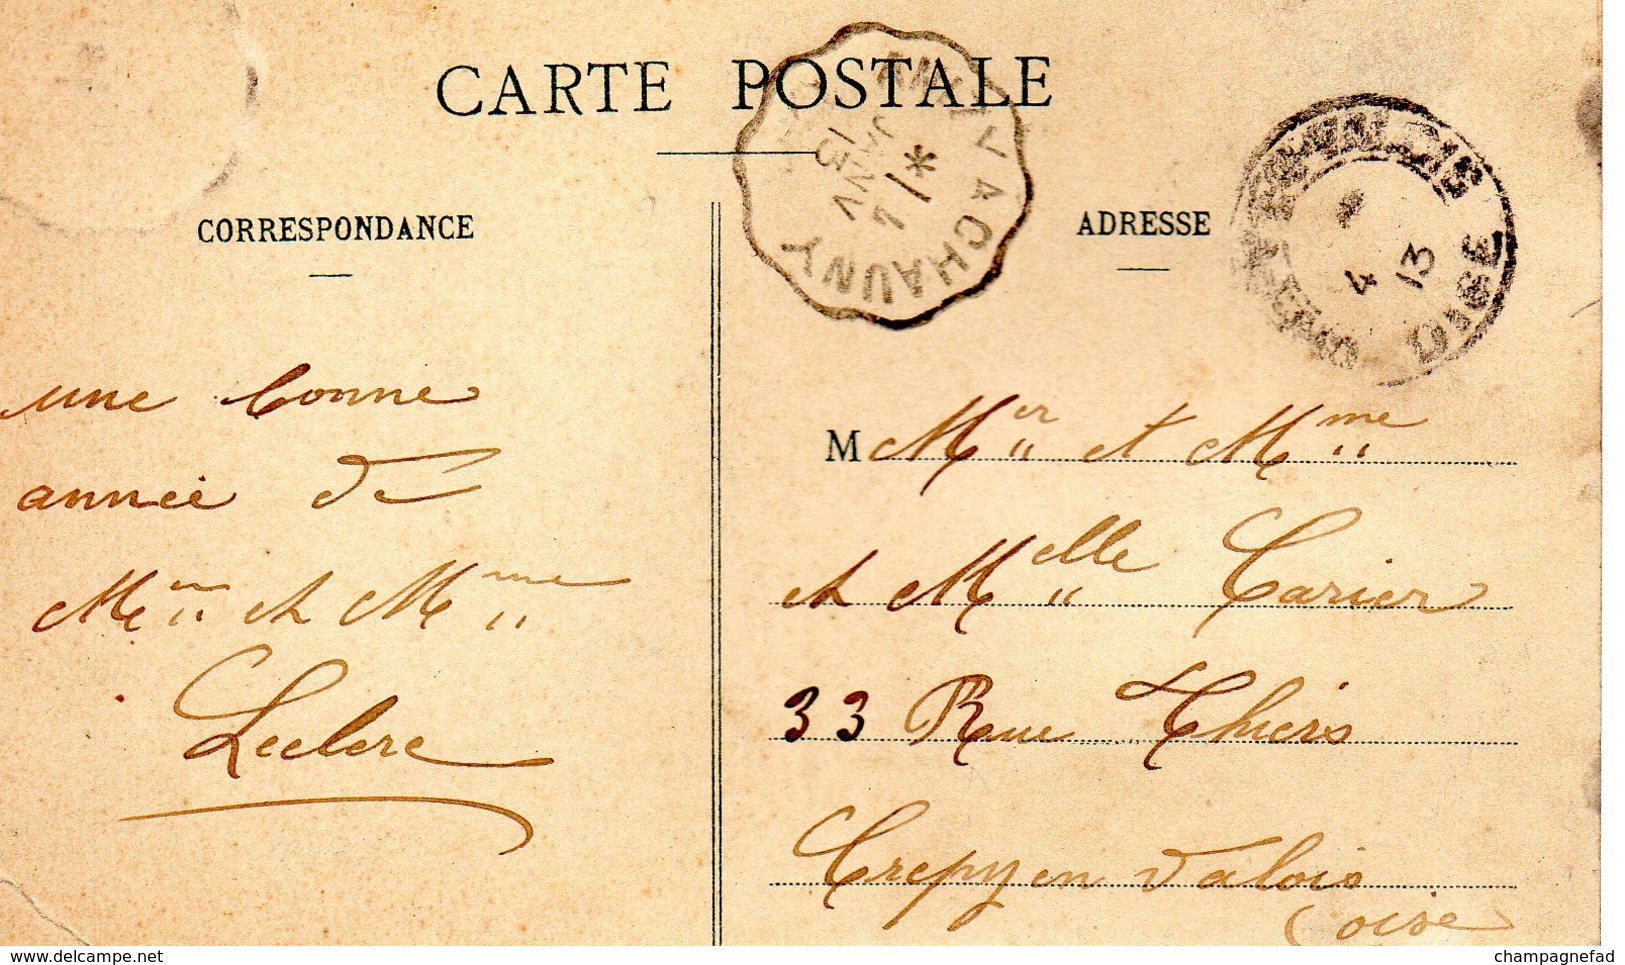 CARTE POSTALE
A CHAUNY
1
4
JANV
13
CORRESPONDANCE
ADRESSE
4
13
OISE
une bonne
année de
Mr et Mme
Leclerc
M Mer et Mme
et Melle Carier
33 Rue Thiers
Crepy en Valois
(oise
delcampe.net
champagnefad